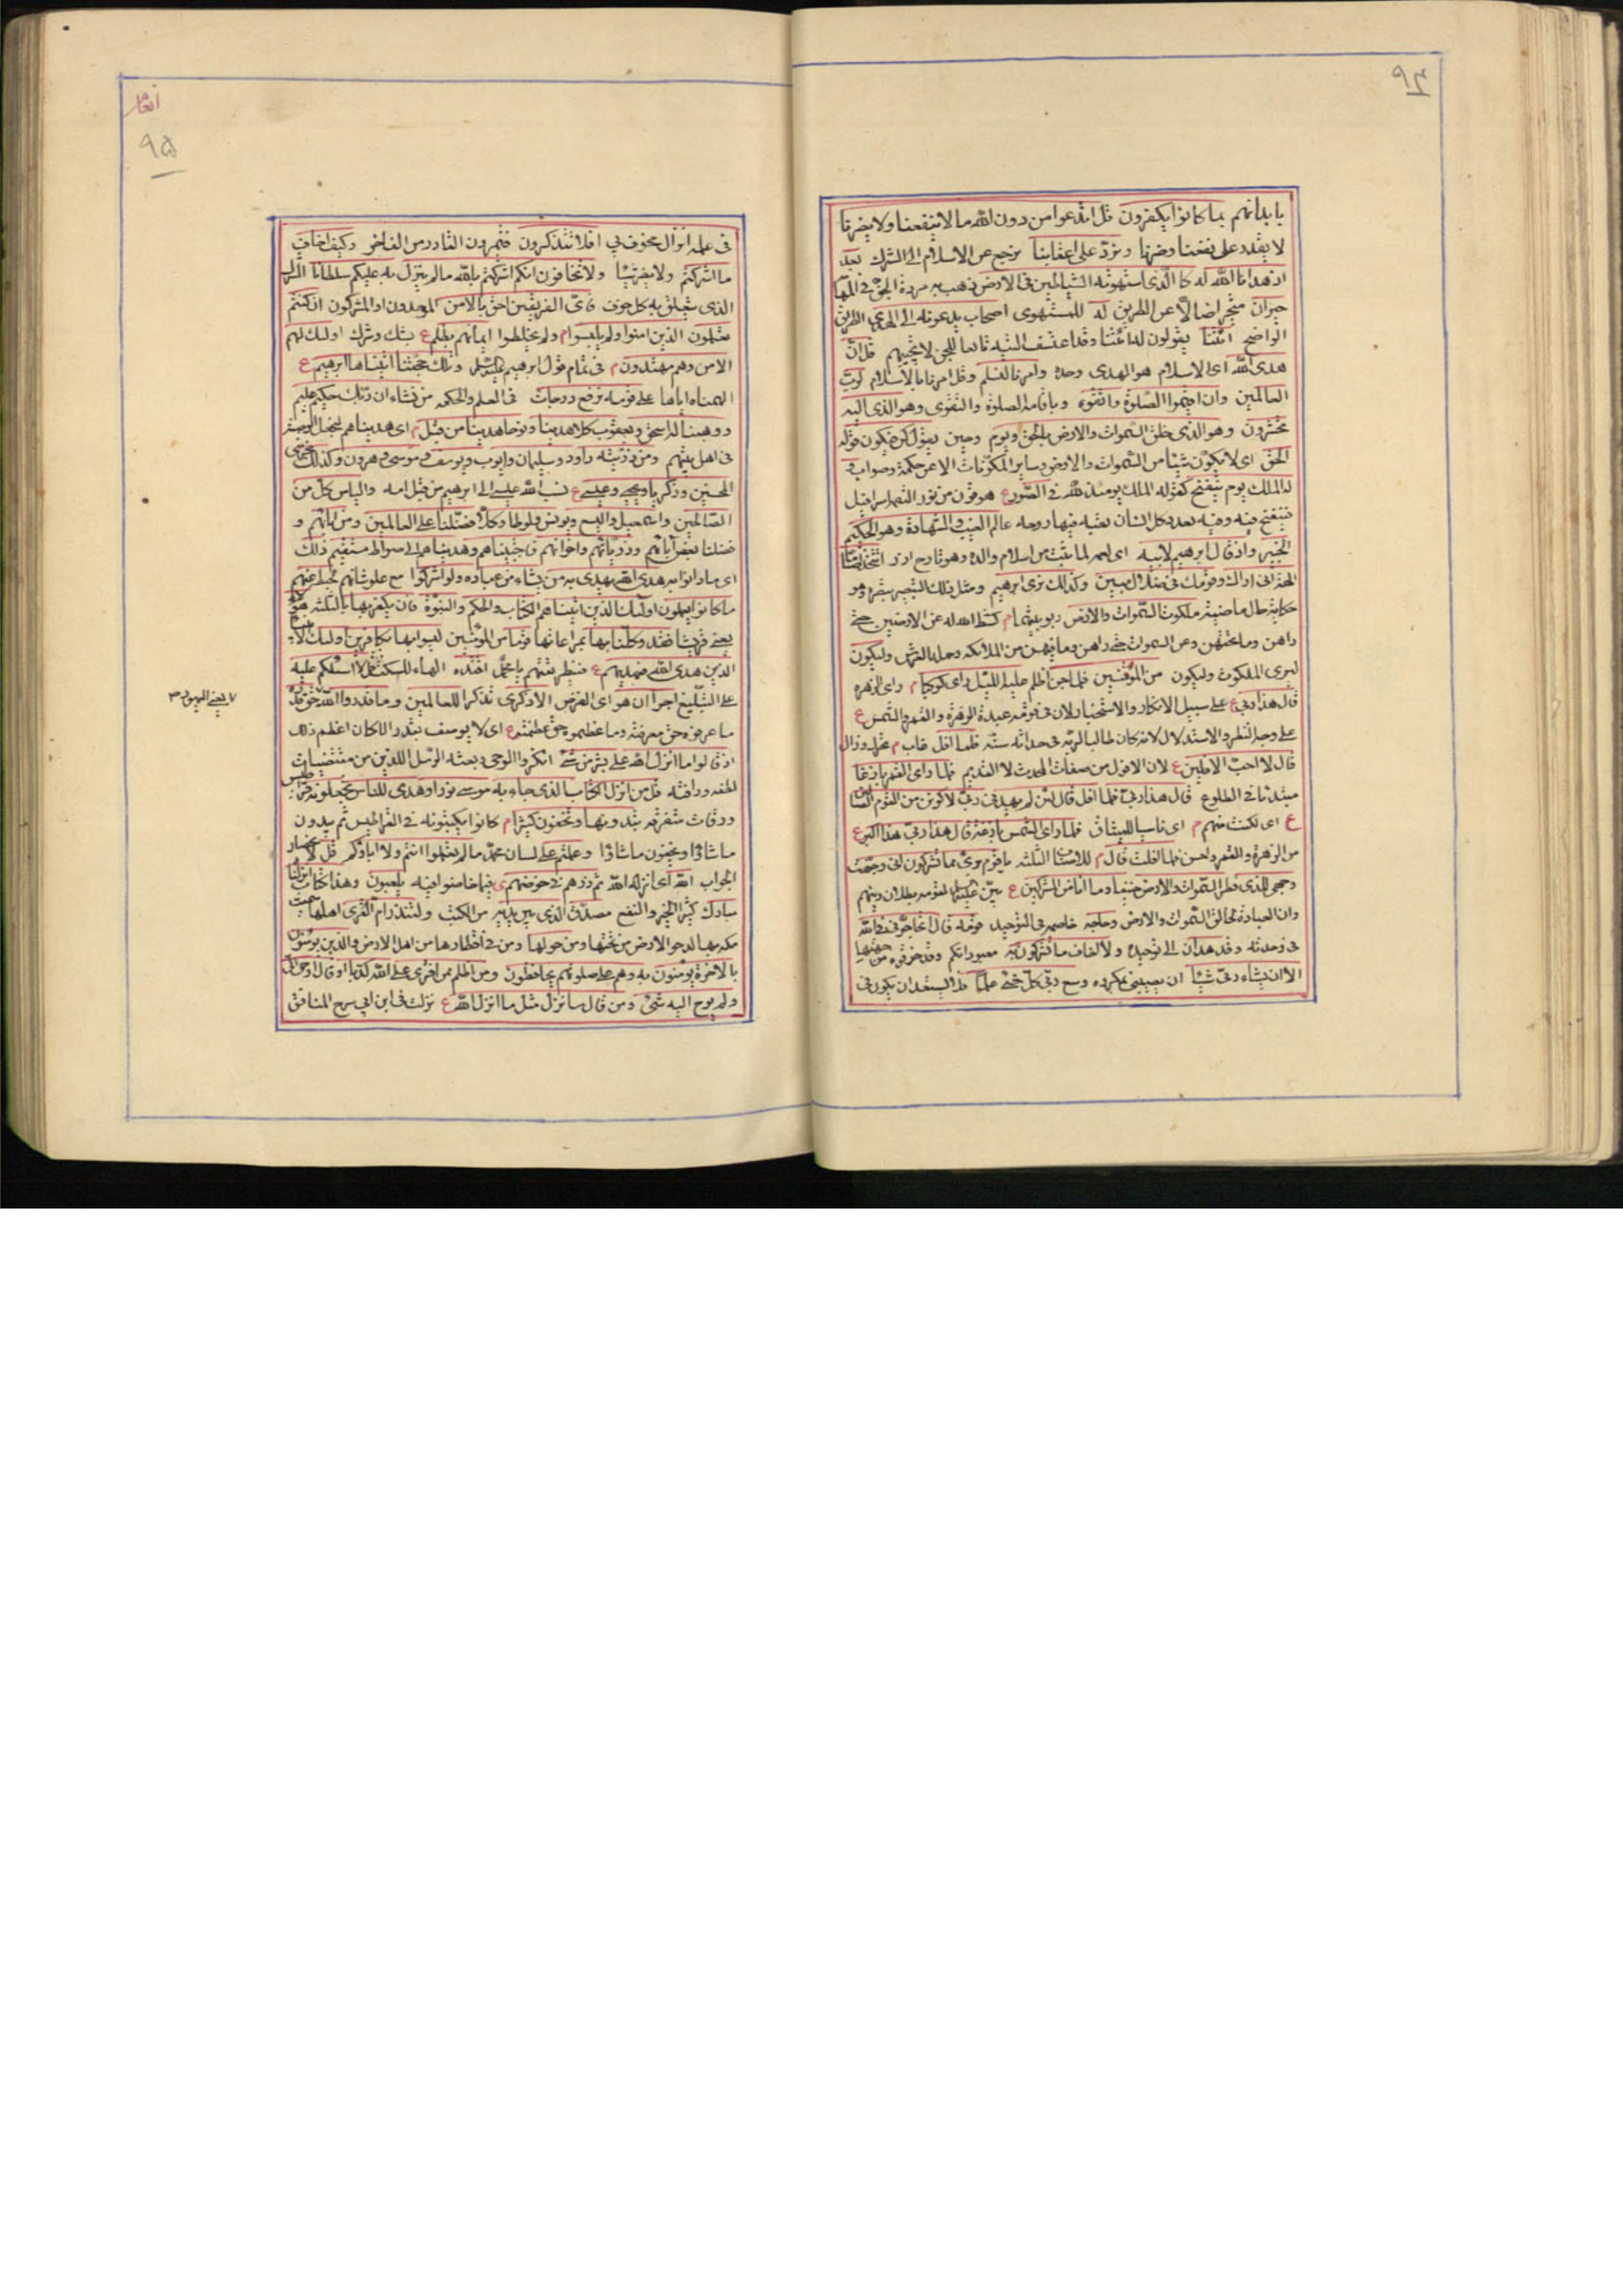 ٩٤
بابدانهم بما كانوا يكفرون قل اندعوا من دون الله ما لا ينفعنا ولا يضرنا
لا يقدر على نفعنا وضرنا ونرد على اعقابنا نرجع عن الاسلام الى الشرك بعد
اذ هدانا الله له كالذي استهوته الشياطين في الارض ذهب به مردة الجن في
حيران متحيرا ضالا عن الطريق له للمستهوى اصحاب يدعونه الى الهدى الطريق
الواضح ائتنا يقولون له ائتنا وقد اعتسف التيه تابعا للجن لا يجيبهم قل ان
هدى الله اى الاسلام هو الهدى وحده وامرنا لنسلم وقل امرنا بالاسلام لرب
العالمين وان اقيموا الصلوة واتقوه وباقامة الصلوة والتقوى وهو الذي اليه
تحشرون وهو الذي خلق السموات والارض بالحق ويوم وحين يقول كن فيكون قوله
الحق اى لا يكون شيئا من السموات والارض وساير المكونات الا عن حكمة وصواب و
له الملك يوم ينفخ كقوله الملك يومئذ لله في الصور ع هو قرن من نور التقمه اسرافيل
فينفخ فيه وفيه بعدد كل انسان ثقبه فيها روحه عالم الغيب والشهادة وهو الحكيم
الخبير واذ قال ابرهيم لابيه
الهة انى اراك وقومك في ضلال مبين وكذلك نرى ابرهيم ومثل ذلك التبصير نبصره وهو
حكاية حال ماضية ملكوت السموات والارض ربوبيتهما م كشط الله له عن الارضين حتى
راهن وما تحتهن وعن السموات حتى راهن وما فيهن من الملائكة وحملة العرش وليكون
ليرى الملكوت وليكون من الموقنين فلما جن اظلم عليه الليل راى كوكبا م راى الزهرة
قال هذا ربي ع على سبيل الانكار والاستخبار لان في قومه عبدة الزهرة والقمر والشمس ع
على وجه النظر والاستدلال لانه كان طالبا لربه في حداثة سنه فلما افل غاب م
قال لا احب الافلين ع لان الافول من صفات المحدث لا القديم فلما راى القمر بازغا
مبتدئا في الطلوع قال هذا ربي فلما افل قال لئن لم يهدني ربي لاكونن من القوم الضالين
ع اى لكنت منهم م اى ناسيا للميثاق فلما راى الشمس بازغة قال هذا ربي هذا اكبر ع
من الزهرة والقمر واحسن فلما افلت قال م للاصناف الثلثه يا قوم برئ مما تشركون انى وجهت
وجهي للذي فطر السموات والارض حنيفا وما انا من المشركين ع بين لقومه بطلان دينهم
وان العبادة لخالق السموات والارض وحاجه خاصمه في التوحيد قومه قال اتحاجوني في الله
في وحدته وقد هدان الى توحيده ولا اخاف ما تشركون به معبوداتكم وقد خوفوه من جهتها
الا ان يشاء ربي شيئا ان يصيبني بمكروه وسع ربي كل شئ علما فلا يستبعد ان يكون في
انعام
٩٥
في علمه انزال مخوف بي افلا تتذكرون فتميزون القادر من العاجز وكيف اخاف
ما اشركتم ولا يضر شيئا ولا تخافون انكم اشركتم بالله ما لم ينزل به عليكم سلطانا
الذي يتعلق به كل خوف فاى الفريقين احق بالامن الموحدون او المشركون ان كنتم
تعلمون الذين امنوا ولم يلبسوا م ولم يخلطوا ايمانهم بظلم ع بشك وشرك اولئك لهم
الامن وهم مهتدون م في تمام قول ابرهيم وتلك حجتنا اتيناها ابرهيم ع
الهمناه اياها على قومه نرفع درجات في العلم والحكمة من نشاء ان ربك حكيم عليم
ووهبنا له اسحق ويعقوب كلا هدينا ونوحا هدينا من قبل م اى هديناهم لنجعل الوصية
في اهل بيتهم ومن ذريته داود وسليمان وايوب ويوسف وموسى وهرون وكذلك نجزى
المحسنين وزكريا ويحيى وعيسى ع نسب الله عيسى الى ابرهيم من قبل امه والياس كل من
الصالحين واسمعيل واليسع ويونس ولوطا وكلا فضلنا على العالمين ومن ابائهم و
فضلنا بعض آبائهم وذرياتهم واخوانهم واجتبيناهم وهديناهم الى صراط مستقيم ذلك
اى ما دانوا به هدى الله يهدى به من يشاء من عباده ولو اشركوا مع علو شانهم لحبط عنهم
ما كانوا يعملون اولئك الذين اتيناهم الكتاب والحكم والنبوة فان يكفر بها بالثلثة هؤلاء
يعنى قريشا فقد وكلنا بها بمراعاتها قوما من المؤمنين ليسوا بها بكافرين اولئك
الذين هدى الله فبهديهم ع فبطريقتهم اقتده الهاء للسكت قل لا اسئلكم عليه
على التبليغ اجرا ان هو اى الغرض الا ذكرى تذكرا للعالمين وما قدروا الله حق قدره
ما عرفوه حق معرفته وما عظموه حق عظمته ع اى لا يوصف بقدر الا كان اعظم من ذلك
اذ قالوا ما انزل الله على بشر من شئ انكروا الوحى وبعثة الرسل اللذين من مقتضيات
لطفه ورافته قل من انزل الكتاب الذي جاء به موسى نورا وهدى للناس تجعلونه قراطيس
ورقات متفرقة تبدونها وتخفون كثيرا م كانوا يكتبونه في القراطيس ثم يبدون
ما شاؤا ويخفون ما شاؤا وعلمتم على لسان محمد ما لم تعلموا انتم ولا اباؤكم قل
الجواب الله اى انزله الله ثم ذرهم في خوضهم فيما خاضوا فيه يلعبون وهذا كتاب انزلناه
مبارك كثير الخير والنفع مصدق الذي بين يديه من الكتب ولتنذر ام القرى اهلها سميت
مكة بها لدحو الارض من تحتها ومن حولها ومن في اقطارها من اهل الارض والذين يؤمنون
بالاخرة يؤمنون به وهم على صلوتهم يحافظون ومن اظلم ممن افترى على الله كذبا او قال اوحى الى
ولم يوح اليه شئ ومن قال سانزل مثل ما انزل الله ع نزلت في ابن ابى سرح المنافق
يعنى اليهود